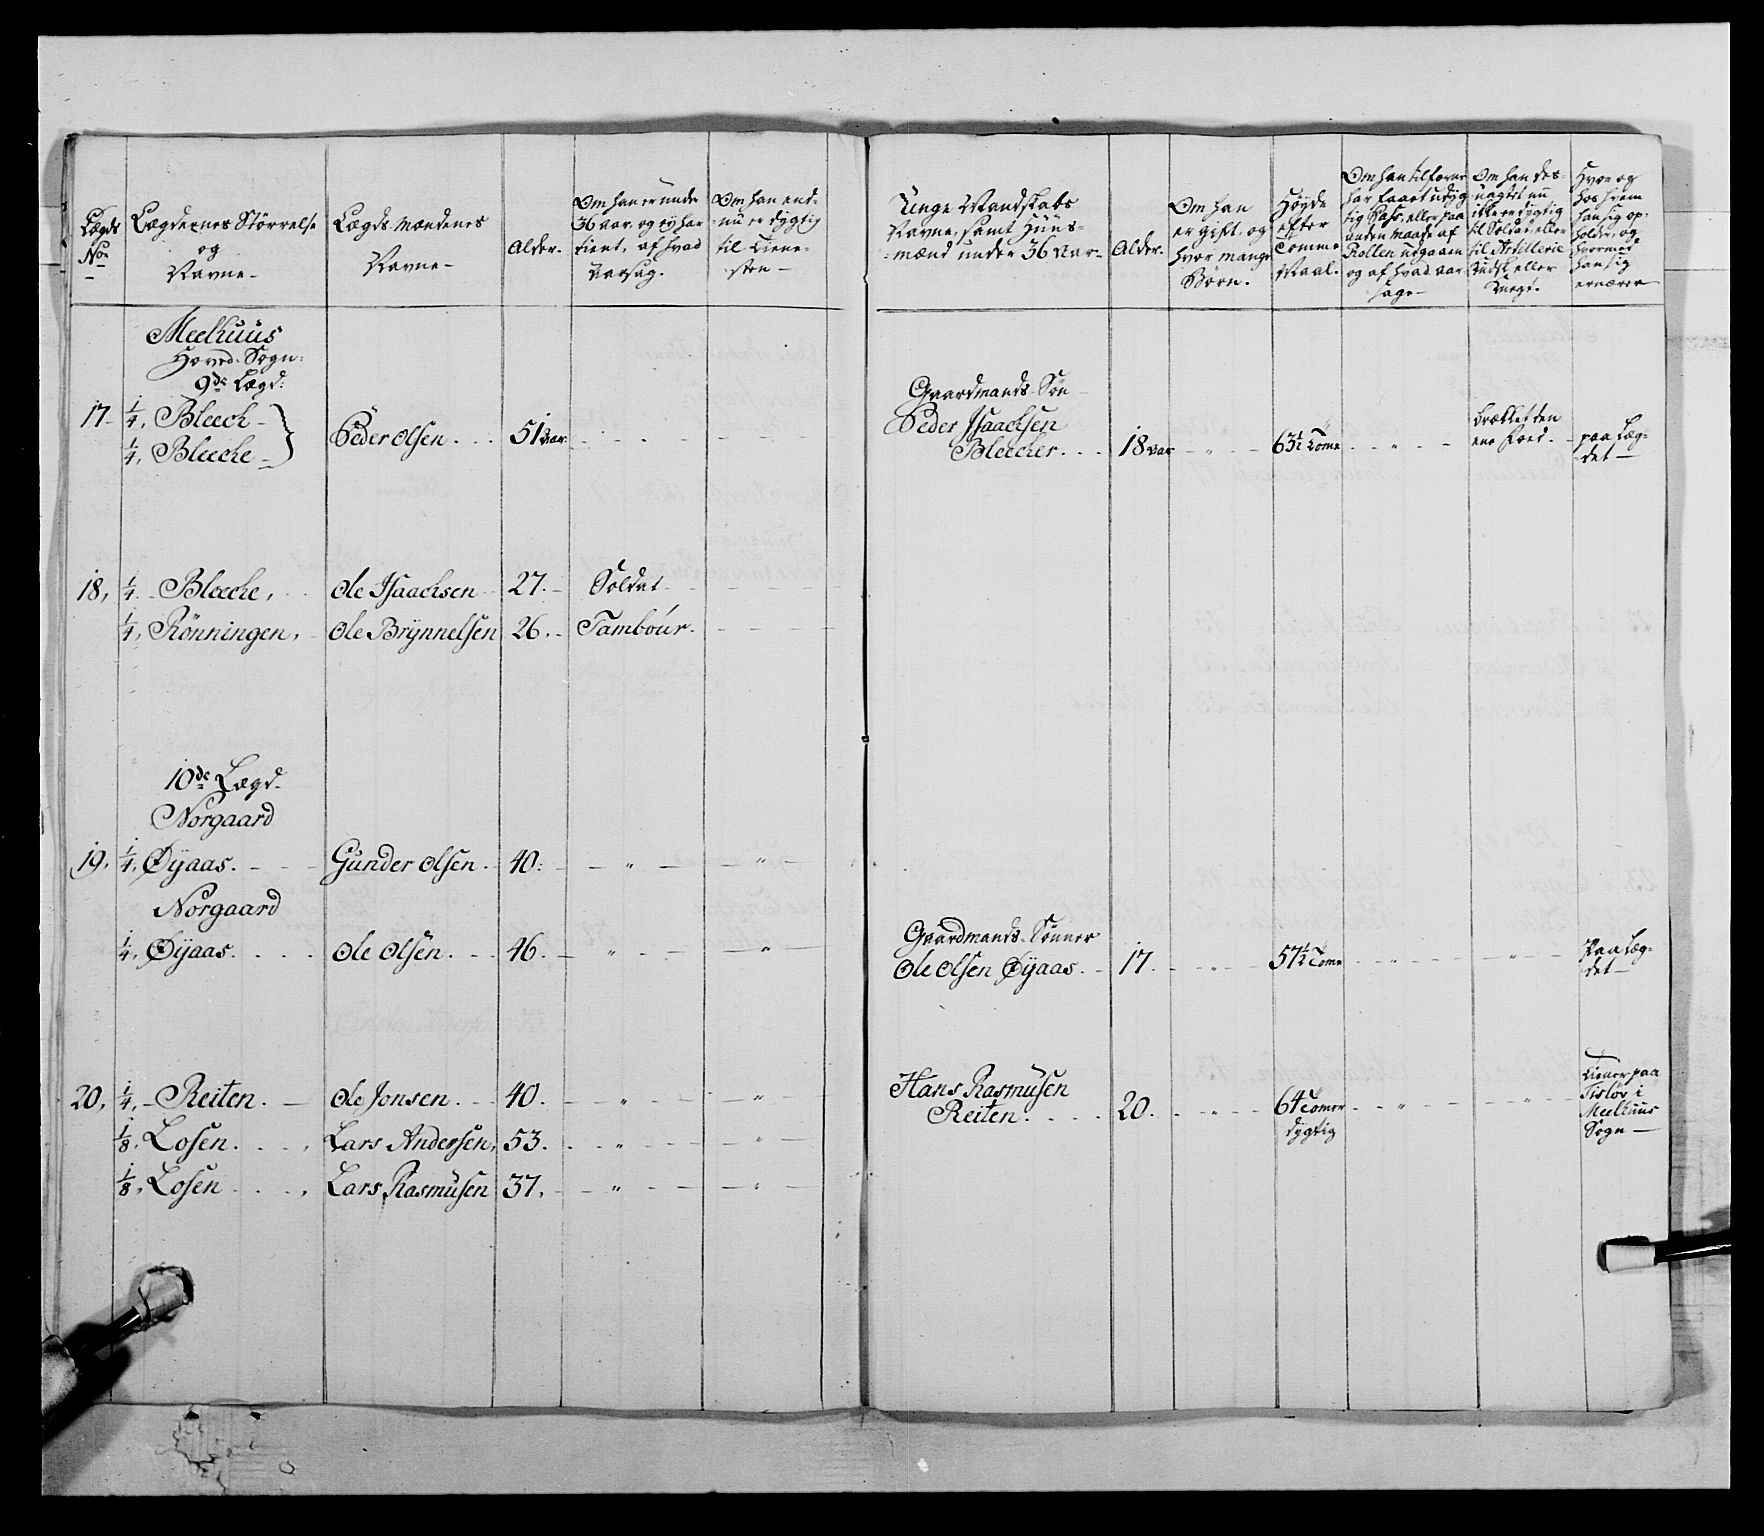 Lægds
No
Lægdernes Störrelse
og
Navne
Lægdsmændenes
Navne
Alder.
Om han er under
36 aar, og ej har
tient, af hvad
Aarsag.
Om han end-
nu er dygtig
til Tiene-
sten
Unge Mandskabs
Navne, samt Huus-
mænd under 36 Aar
Alder.
Om han
er gift, og
hvor mange
Börn.
Høyde
efter
Tomme
Maal.
Om han tilforne
har faaet udyg-
tig Pass, eller paa
anden Maade af
Rollen udgaaen
og af hvad aar-
sage
Om han des-
uagtet nu
ikke er dygtig
til Soldat, eller
til Artillerie
Kudsk eller
Knegt.
Hvor og
hos hvem
han sig op-
holder, og
hvormed
han sig
ernærer
Meelhuus
Hoved-Sogn:
9de Lægd:
17 1/4 Bleech
1/4 Bleeche
Peder Olsen 51 aar
Gaardmands-Sön
Peder Isaachsen
Bleecher 18 aar " 63 1/2 Tome " brækket den
ene Foed. paa Læg-
det
18, 1/4 Bleeche, Ole Isaachsen 27. Soldat
1/4, Rönningen, Ole Brÿnnelsen 26. Tambour.
10de Lægd
Norgaard
19, 1/4, Øÿaas. Gunder Olsen 40: " "
Norgaard
1/4, Øÿaas. Ole Olsen 46. " "
Gaardmands-Sönner
Ole Olsen Øÿaas 17. " 57 1/2 Tome " " Paa Læg-
det
20, 1/4, Reiten. Ole Jonsen 40. " "
1/8, Losen. Lars Andersen, 53. " "
1/8, Losen Lars Rasmusen 37. " "
Hans Rasmusen
Reiten. 20. " 64 Tomer
dygtig " "
Tiener paa
i
Meelhuus
Sogn